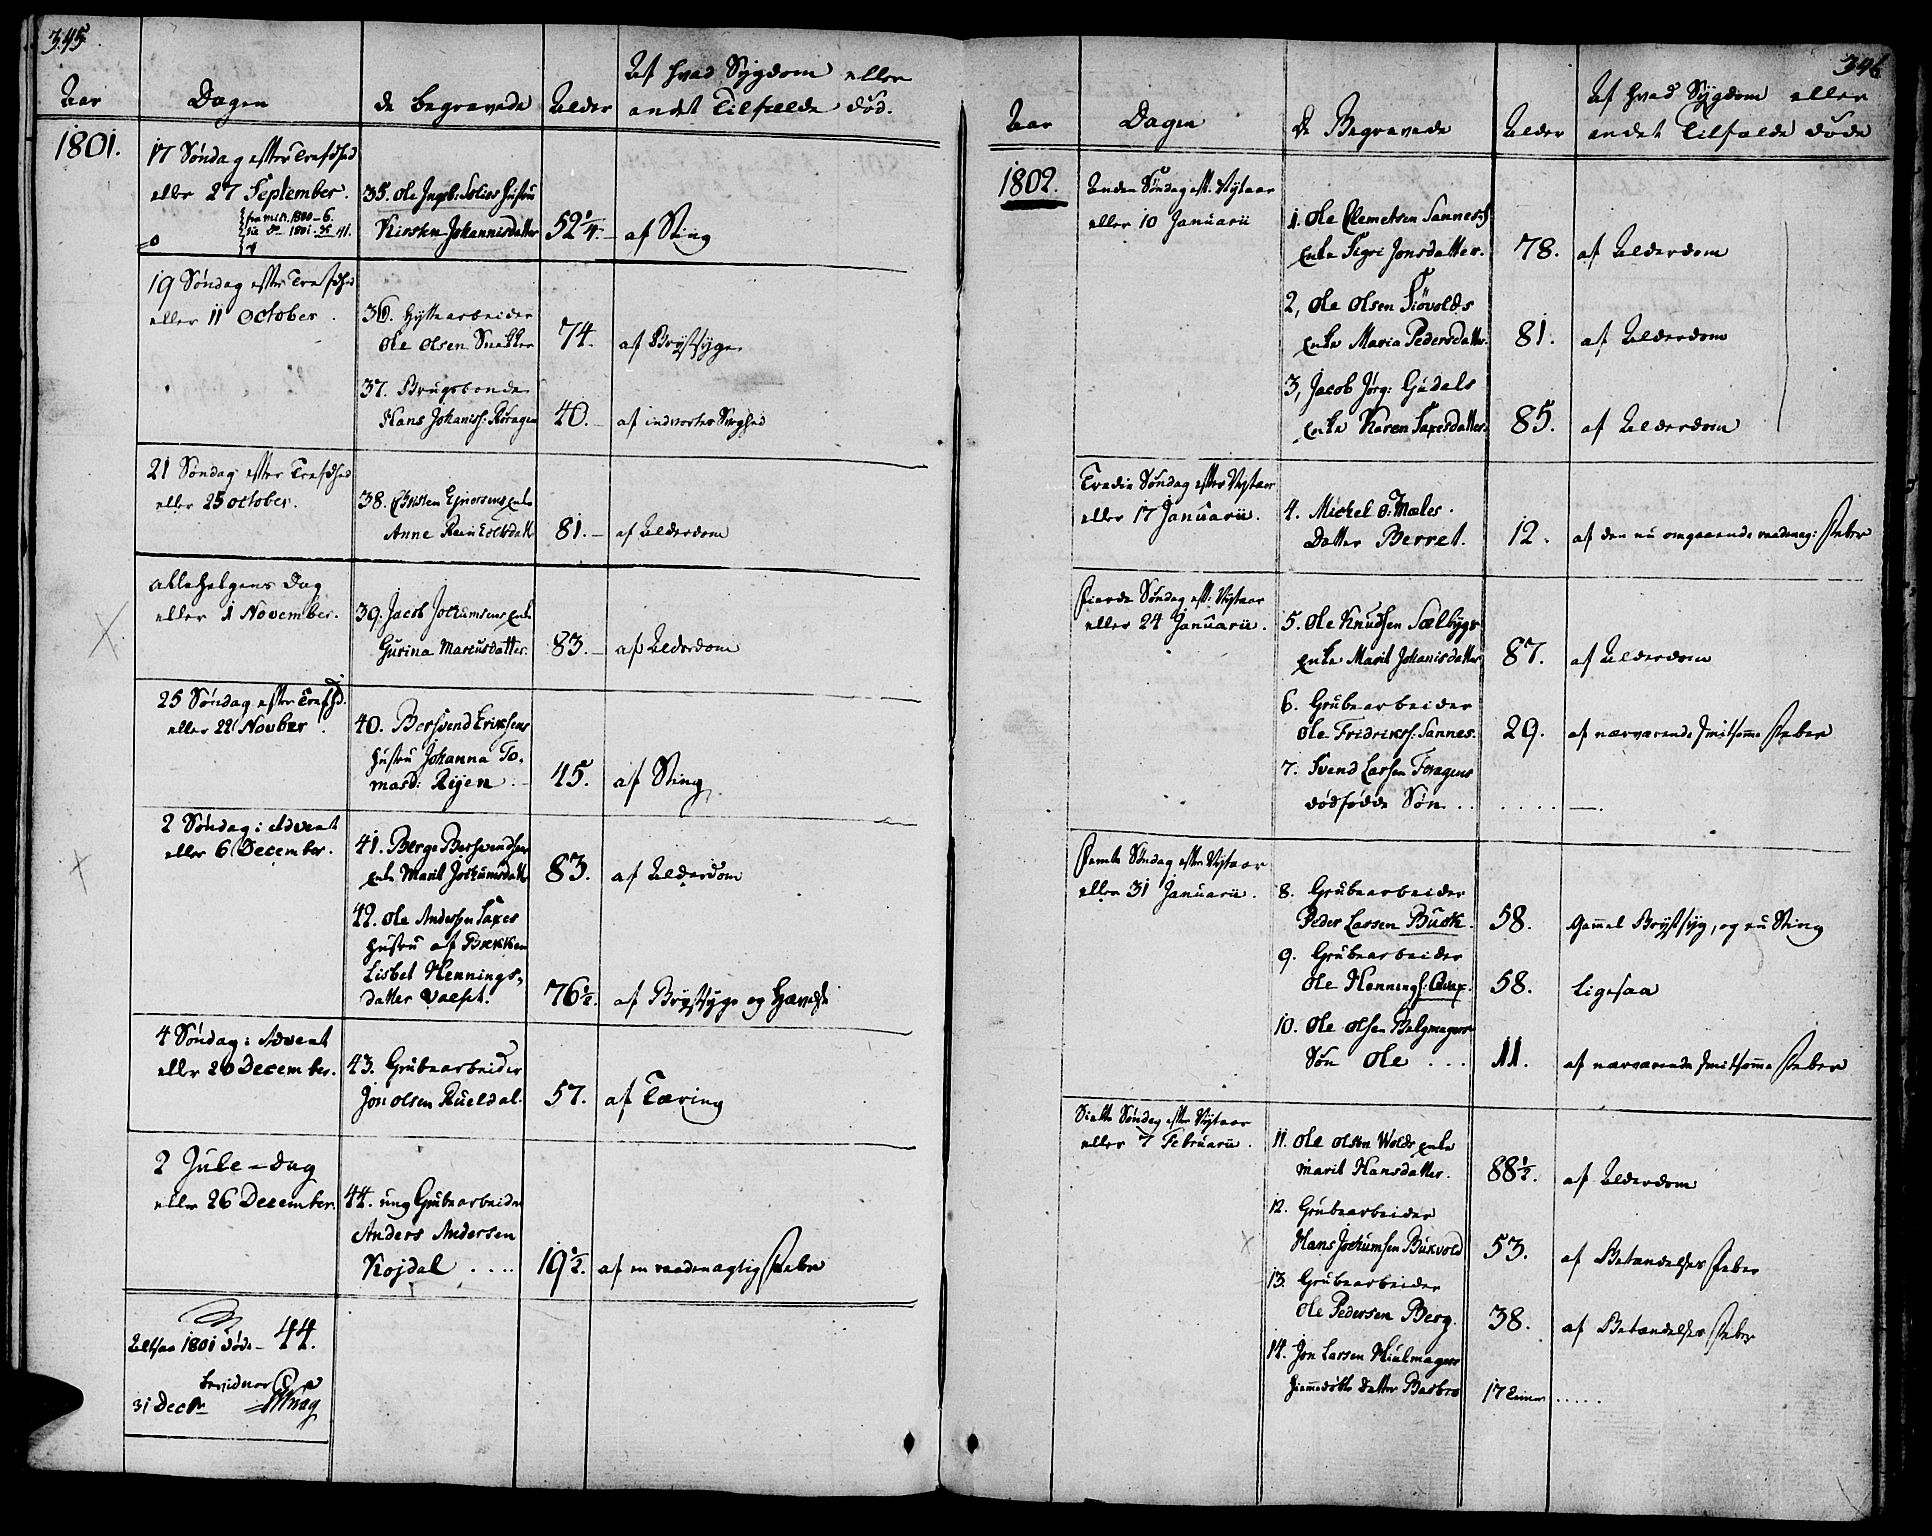 345
Aar Dagen de begravede Alder Af hvad Sygdom eller
andet Tilfælde død.
1801. 17 Søndag efter Trefdhed
eller 27 September. 35. Ole Ingeb: Solies Hustru
Kirsten Johannisdatter 52 1/4. af Sting
19 Søndag efter Trefdhed
eller 11 October. 36. Hyttearbeider
Ole Olsen Snekker 74. af Brystsyge
37. Brugsbonde
Hans Johaniss: Røragen 40. af indvortes Svaghed
21 Søndag efter Trefdhed
eller 25 October. 38. Christen Ejnersens Enke
Anne Reinholtsdatt 81. af Alderdom
Allehelgens Dag
eller 1 November. 39. Jacob Jochumsens Enke
Gurina Marcusdatter. 83. af Alderdom
25 Søndag efter Trefhd.
eller 22 Novber. 40. Bersvend Eriksens
Hustru Johanna To-
masd: Rijen 45. af Sting
2 Søndag i Advent
eller 6 December. 41. Berge Bersvendsens
Enke Marit Jochumsdatt 83. af Alderdom
42. Ole Andersen Saxes
Hustru af Bekken
Lisbet Hennings-
datter Valset. 76 1/2. af Brystsyge og Hævelse
4 Søndag i Advent
eller 20 December. 43. Grubearbeider
Jon Olsen Rueldal. 57. af Tæring
2 Jule-dag
eller 26 December. 44. ung Grubearbeider
Anders Andersen
Kojdal .... 19 1/2. af en raadenagtig Feber
Altsaa 1801 døde- 44.
bevidner
31 Decbr
346
Aar Dagen De Begravede Alder Af hvad Sygdom eller
andet Tilfælde døde
1802. Anden Søndag eft: Nytaar
eller 10 Januarii 1. Ole Clemetsen Sannes
Enke Sigri Jonsdatter. 78. af Alderdom
2, Ole Olsen Siøvolds
Enke Maria Pedersdatter. 81. af Alderdom
3, Jacob Jørg: Gudals
Enke Karen Saxesdatter. 85. af Alderdom
Tredie Søndag efter Nytaar
eller 17 Januarii. 4. Mickel O: Moles
Datter Berret. 12. af den nu omgaaende raadenag: Feber
Fierde Søndag eft: Nytaar
eller 24 Januarii. 5. Ole Knudsen Sælbygs
Enke Marit Johanisdatter 87. af Alderdom
6. Grubearbeider
Ole Fridrikss: Sannes. 29. af nærværende smitsomme Feber
7. Svend Larsen Feragens
dødfødde Søn .. .... —.
Femte Søndag efter Nytaar
eller 31 Januarii. 8. Grubearbeider
Peder Larsen Busk. 58. Gammel Brystsyg, og nu Sting
9. Grubearbeider
Ole Hennings: 58. Ligesaa
10. Ole Olsen Belgmagers
Søn Ole ... 11. af nærværende smitsomme Feber
Siette Søndag efter Nytaar
eller 7 Februarii. 11. Ole Olsen Wolds Enke
Marit Hansdatter. 88 1/2. af Alderdom
12. Grubearbeider
Hans Jochumsen Bukvold 53. af Betændelses Feber
13. Grubearbeider
Ole Pedersen Berg. 38. af Betændelses Feber
14. Jon Larsen Hiulmagers
hiemmedøbte Datter Barbro 17 Timer .....